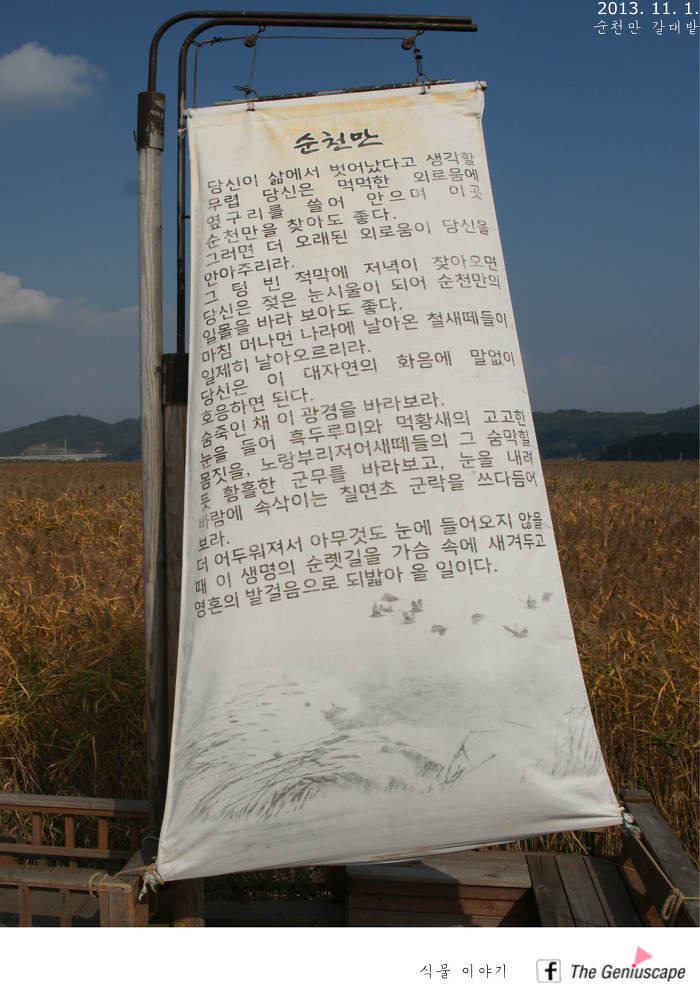 2013. 11. 1.
순천만 갈대밭
순천만
당신이 삶에서 벗어났다고 생각할
무렵 당신은 먹먹한 외로움에
옆구리를 쓸어 안으며 이곳
순천만을 찾아도 좋다.
그러면 더 오래된 외로움이 당신을
안아주리라.
그 텅 빈 적막에 저녁이 찾아오면
당신은 젖은 눈시울이 되어 순천만의
일몰을 바라 보아도 좋다.
마침 머나먼 나라에 날아온 철새떼들이
일제히 날아오르리라.
당신은 이 대자연의 화음에 말없이
호응하면 된다.
숨죽인 채 이 광경을 바라보라.
눈을 들어 흑두루미와 먹황새의 고고한
몸짓을, 노랑부리저어새떼들의 그 숨막힐
듯 황홀한 군무를 바라보고, 눈을 내려
바람에 속삭이는 칠면초 군락을 쓰다듬어
보라.
더 어두워져서 아무것도 눈에 들어오지 않을
때 이 생명의 순렛길을 가슴 속에 새겨두고
영혼의 발걸음으로 되밟아 올 일이다.
식물 이야기 f The Geniuscape